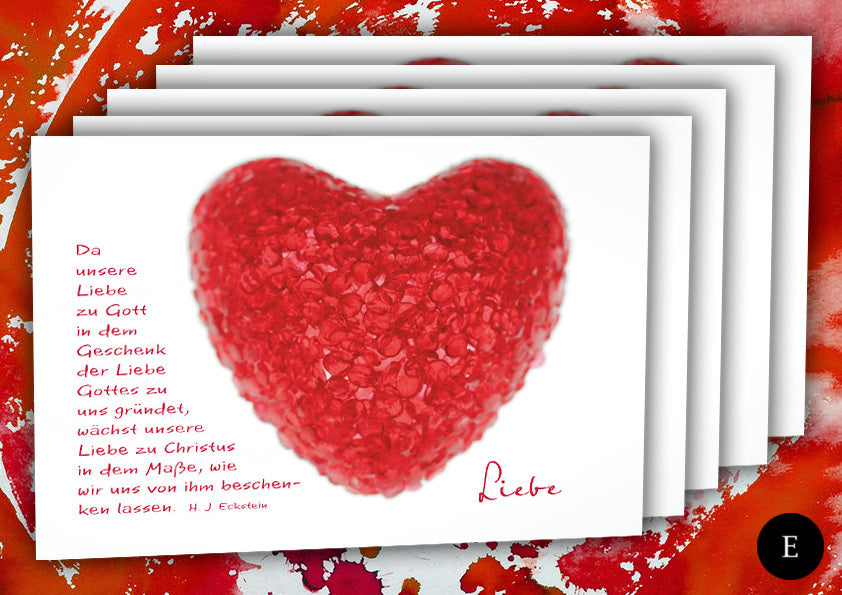 Da
unsere
Liebe
zu Gott
in dem
Geschenk
der Liebe
Gottes zu
uns gründet,
wächst unsere
Liebe zu Christus
in dem Maße, wie
wir uns von ihm beschen-
ken lassen. H. J. Eckstein
Liebe
E